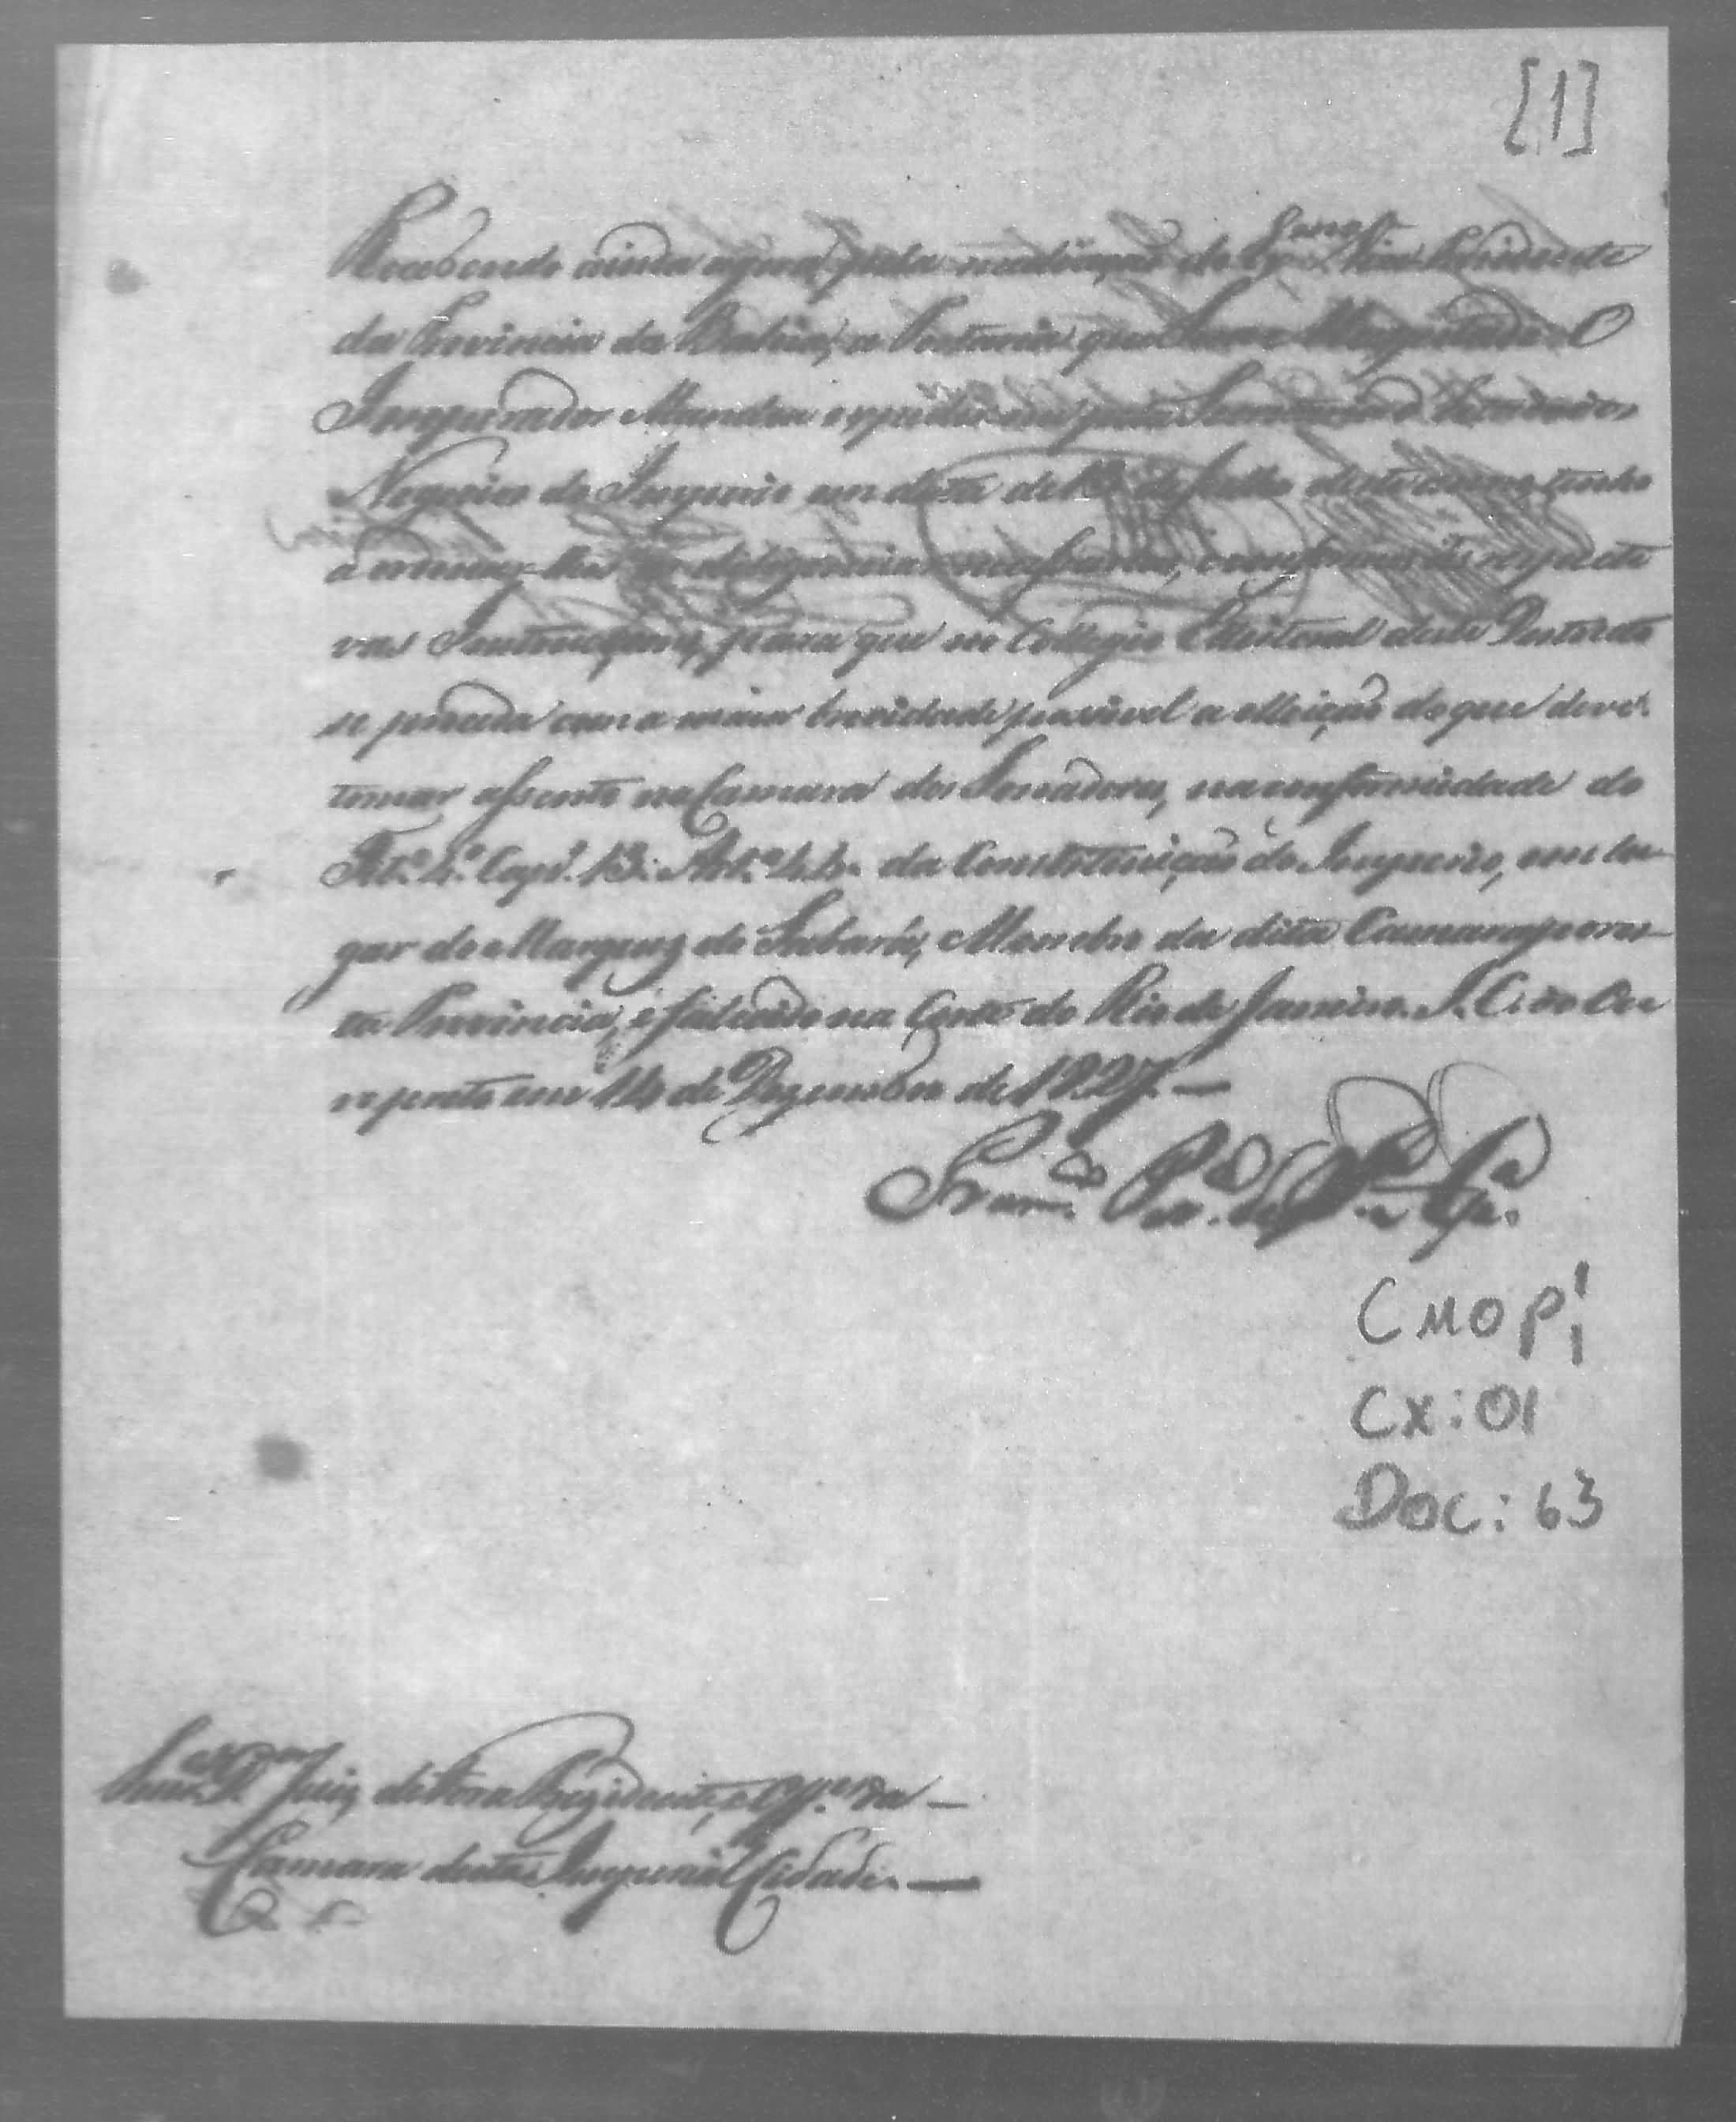 [1]
Recebendo ainda agora, pela mediação do Ex.mo Snr. Vice Prezidente
da Provincia da Bahia, a Portaria que Sua Magestade O
Imperador Mandou expedir-me pela Secretaria d'Estado dos
Negocios do Imperio em data de 13 de Julho deste anno tenho
a ordenar-lhes as deligencias necessarias, conforme as respecti
vas Instrucçoens, para que no Collegio Elleitoral deste Destricto
se proceda com a maior brevidade possivel a elleição do que deve
tomar assento na Camara dos Senadores, na conformidade do
Tit.º 4.º Cap.º 13. Art.º 44. da Constetuição do Imperio, em lu-
gar do Marquez de Sabará, Membro da dita Camara por es-
ta Provincia, e falecido na Corte do Rio de Janeiro. I. C. do Ou
ro preto em 14 de Dezembro de 1827. —
Fran.co
CMOP
Cx: 01
Doc: 63
Snr.es Dr. Juiz de Fora Prezidente, e Off.es da —
Camara desta Imperial Cidade. —